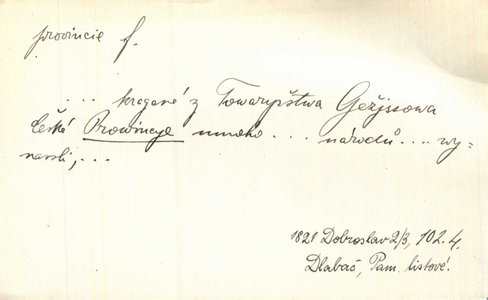 provincie f.
... kragané z Towaryšstwa Gežjssowa
česká Prowincye mnoho... národů.... wy-
nesli,...
1821 Dobroslav 2/3, 102.4.
Dlabač, Pam. listové.